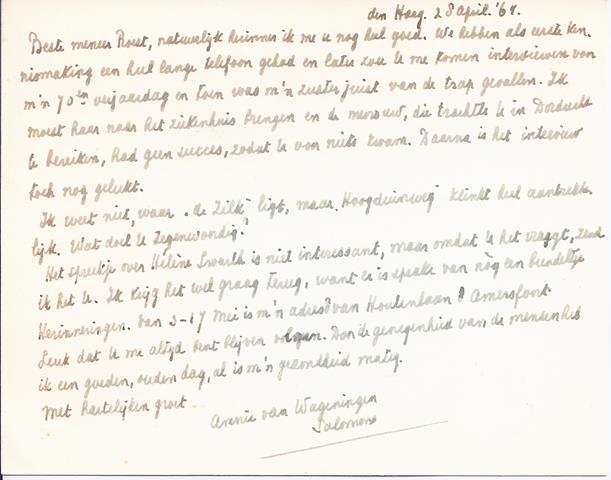 den Haag. 28 April. '64.
Beste meneer Roest, natuurlijk herinner ik me u nog heel goed. We hebben als eerste ken-
nismaking een heel lange telefoon gehad en later zou u me komen interviewen voor
m'n 70sten verjaardag en toen was m'n zuster juist van de trap gevallen. Ik
moest haar naar het ziekenhuis brengen en de mevrouw, die trachtte u in Dordrecht
te bereiken, had geen succes, zodat u voor niets kwam. Daarna is het interview
toch nog gelukt.
Ik weet niet, waar "de Zilk" ligt, maar "Hoogduinweg" klinkt heel aantrekke-
lijk. Wat doet u tegenwoordig?
Het spreekje over Hélène Swarth is niet interessant, maar omdat u het vraagt, zend
ik het u. Ik krijg het wel graag terug, want er is sprake van nòg een bundeltje
Herinneringen. Van 3-17 Mei is m'n adres van Houtenlaan 8 Amersfoort.
Leuk dat u me altijd bent blijven volgen. Door de genegenheid van de mensen heb
ik een goeden, ouden dag, al is m'n gezondheid matig.
Met hartelijken groet
Annie van Wageningen
Salomons